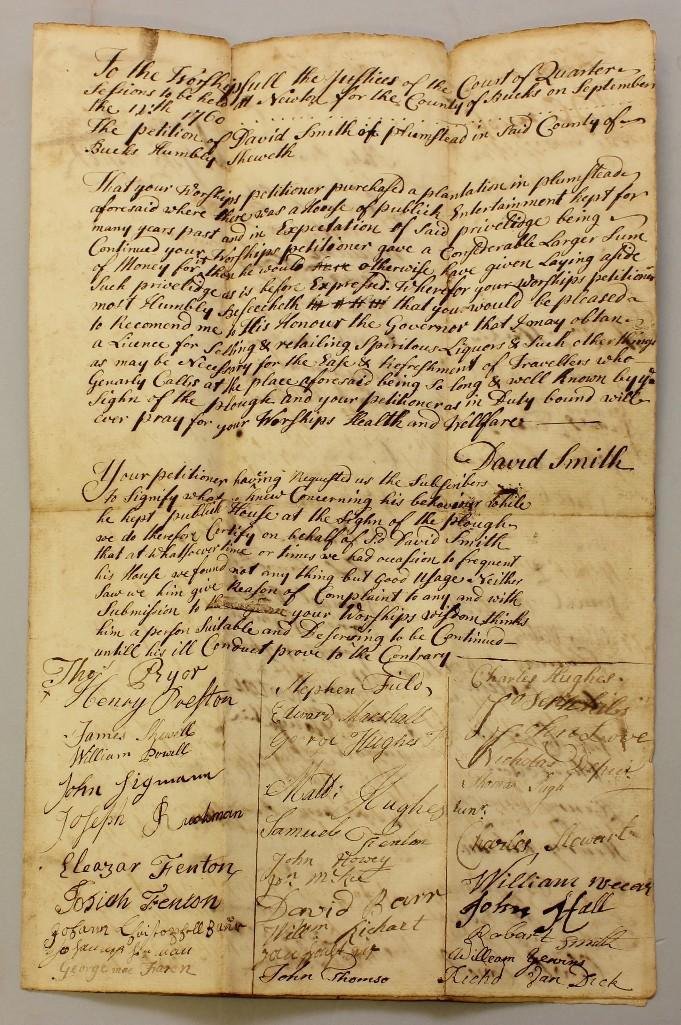 To the Worshipfull the Justices of the Court of Quarter
Sessions to be held att Newton for the County of Bucks on September
the 12th 1760
The petition of David Smith of plumstead in Said County of
Bucks Humbly Sheweth
That your Worships petitioner purchased a plantation in plumstead
aforesaid where there was a House of publick Entertainment kept for
many years past and in Expectation of Said priveledge being
Continued your Worships petitioner gave a Considerable Larger Sum
of Money for then he would otherwise have given Laying aside
Such priveledge as is before Expressed. Wherefor your worships petitioner
most Humbly Beseecheth that you would be pleased
to Recomend me to His Honour the Governor that I may obtan
a Licence for Selling & retailing Spiritous Liquors & Such other things
as may be Necessary for the Ease & Refreshment of Travellers who
Genarly Calls at the place aforesaid being So long & well known by ye
Sighn of the plough and your petitioner as in Duty bound will
ever pray for your Worships Health and Wellfare
David Smith
Your petitioner having Requested us the Subscribers
to Signify what we knew Concerning his behaviour while
he kept publick House at the Sighn of the plough
we do therefore Certify on behalf of Sd David Smith
that at whatsoever time or times we had occasion to frequent
his House we found not any thing but Good Usage Neither
Saw we him give Reason of Complaint to any and with
Submission to your Worships wisdom thinks
him a person Suitable and Deserving to be Continued
untill his ill Conduct prove to the Contrary
Thos Pryor
Henry Preston
James Shewell
William Powell
John Sigmann
Joseph Ruckman
Eleazar Fenton
Josiah Fenton
Johann
George
Stephen Field
Edward Marshall
George Hughes
Matt: Hughes
Samuel Fenton
John Howey
Jon McKee
David Barr
Willm Richart
John Thomso
Charles Hughes
Nicholas
Thomas Pugh
Junr
Charles Stewart
William
John Hall
Robart Smith
William
Richd Van Dick